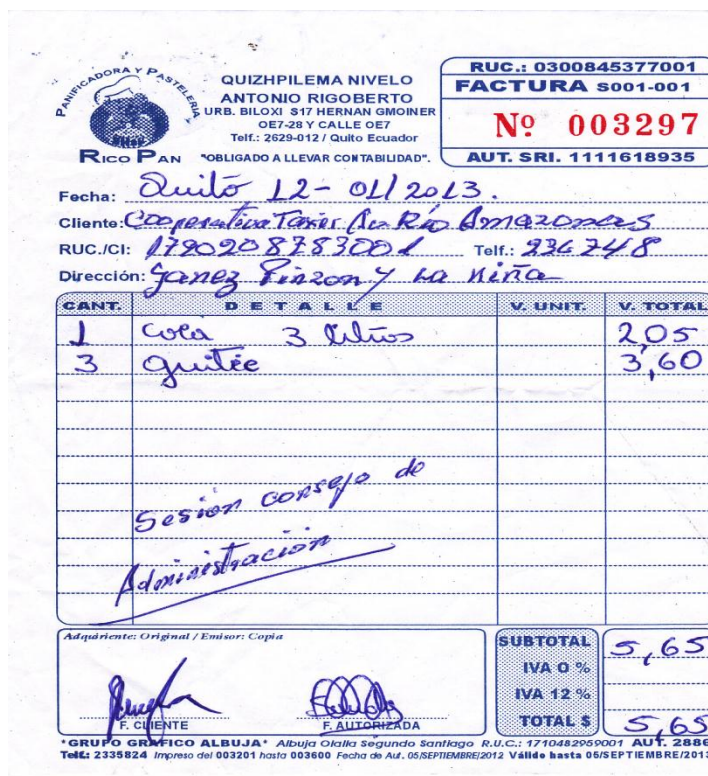 PANIFICADORA Y PASTELERIA
RICO PAN
QUIZHPILEMA NIVELO
ANTONIO RIGOBERTO
URB. BILOXI S17 HERNAN GMOINER
OE7-28 Y CALLE OE7
Telf.: 2629-012 / Quito Ecuador
"OBLIGADO A LLEVAR CONTABILIDAD".
RUC.: 0300845377001
FACTURA S001-001
Nº 003297
AUT. SRI. 1111618935
Fecha: Quito 12-01/2013.
Cliente: Cooperativa Taxis Río Amazonas
RUC./CI: Telf.: 236248
Dirección: Yanez Pinzon y La Niña
CANT. DETALLE V. UNIT. V. TOTAL
1 cola 3 litros 2,05
3 3,60
Sesion consejo de
Administración
Adquiriente: Original / Emisor: Copia
SUBTOTAL 5,65
IVA 0 %
IVA 12 %
TOTAL $ 5,65
F. CLIENTE F. AUTORIZADA
*GRUPO GRAFICO ALBUJA* Albuja Olalla Segundo Santiago R.U.C.: 1710482959001 AUT. 2886
Telf.: 2335824 Impreso del 003201 hasta 003600 Fecha de Aut. 05/SEPTIEMBRE/2012 Válido hasta 05/SEPTIEMBRE/2013